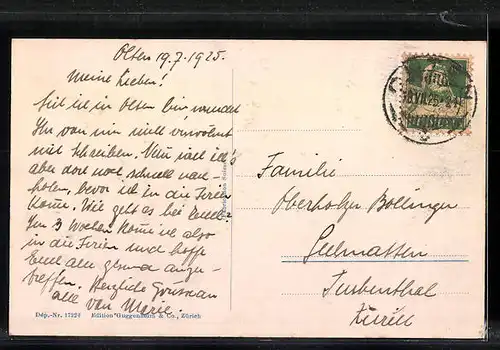 Olten 19.7.1925.
Meine Lieben!
Seit ich in Olten bin, werdet
Ihr von mir nicht verwöhnt
mit Schreiben. Nun will ich's
aber doch noch schnell nach-
holen, bevor ich in die Ferien
komme. Wie geht es bei Euch?
In 3 Wochen komme ich also
in die Ferien und hoffe
Euch alle gesund anzu-
treffen. Herzliche Grüsse an
alle von Marie.
Familie
Oberholzer Bollinger
Seelmatten
Turbenthal
Zürich
Dép.-Nr. 17324 Edition Guggenheim & Co., Zürich